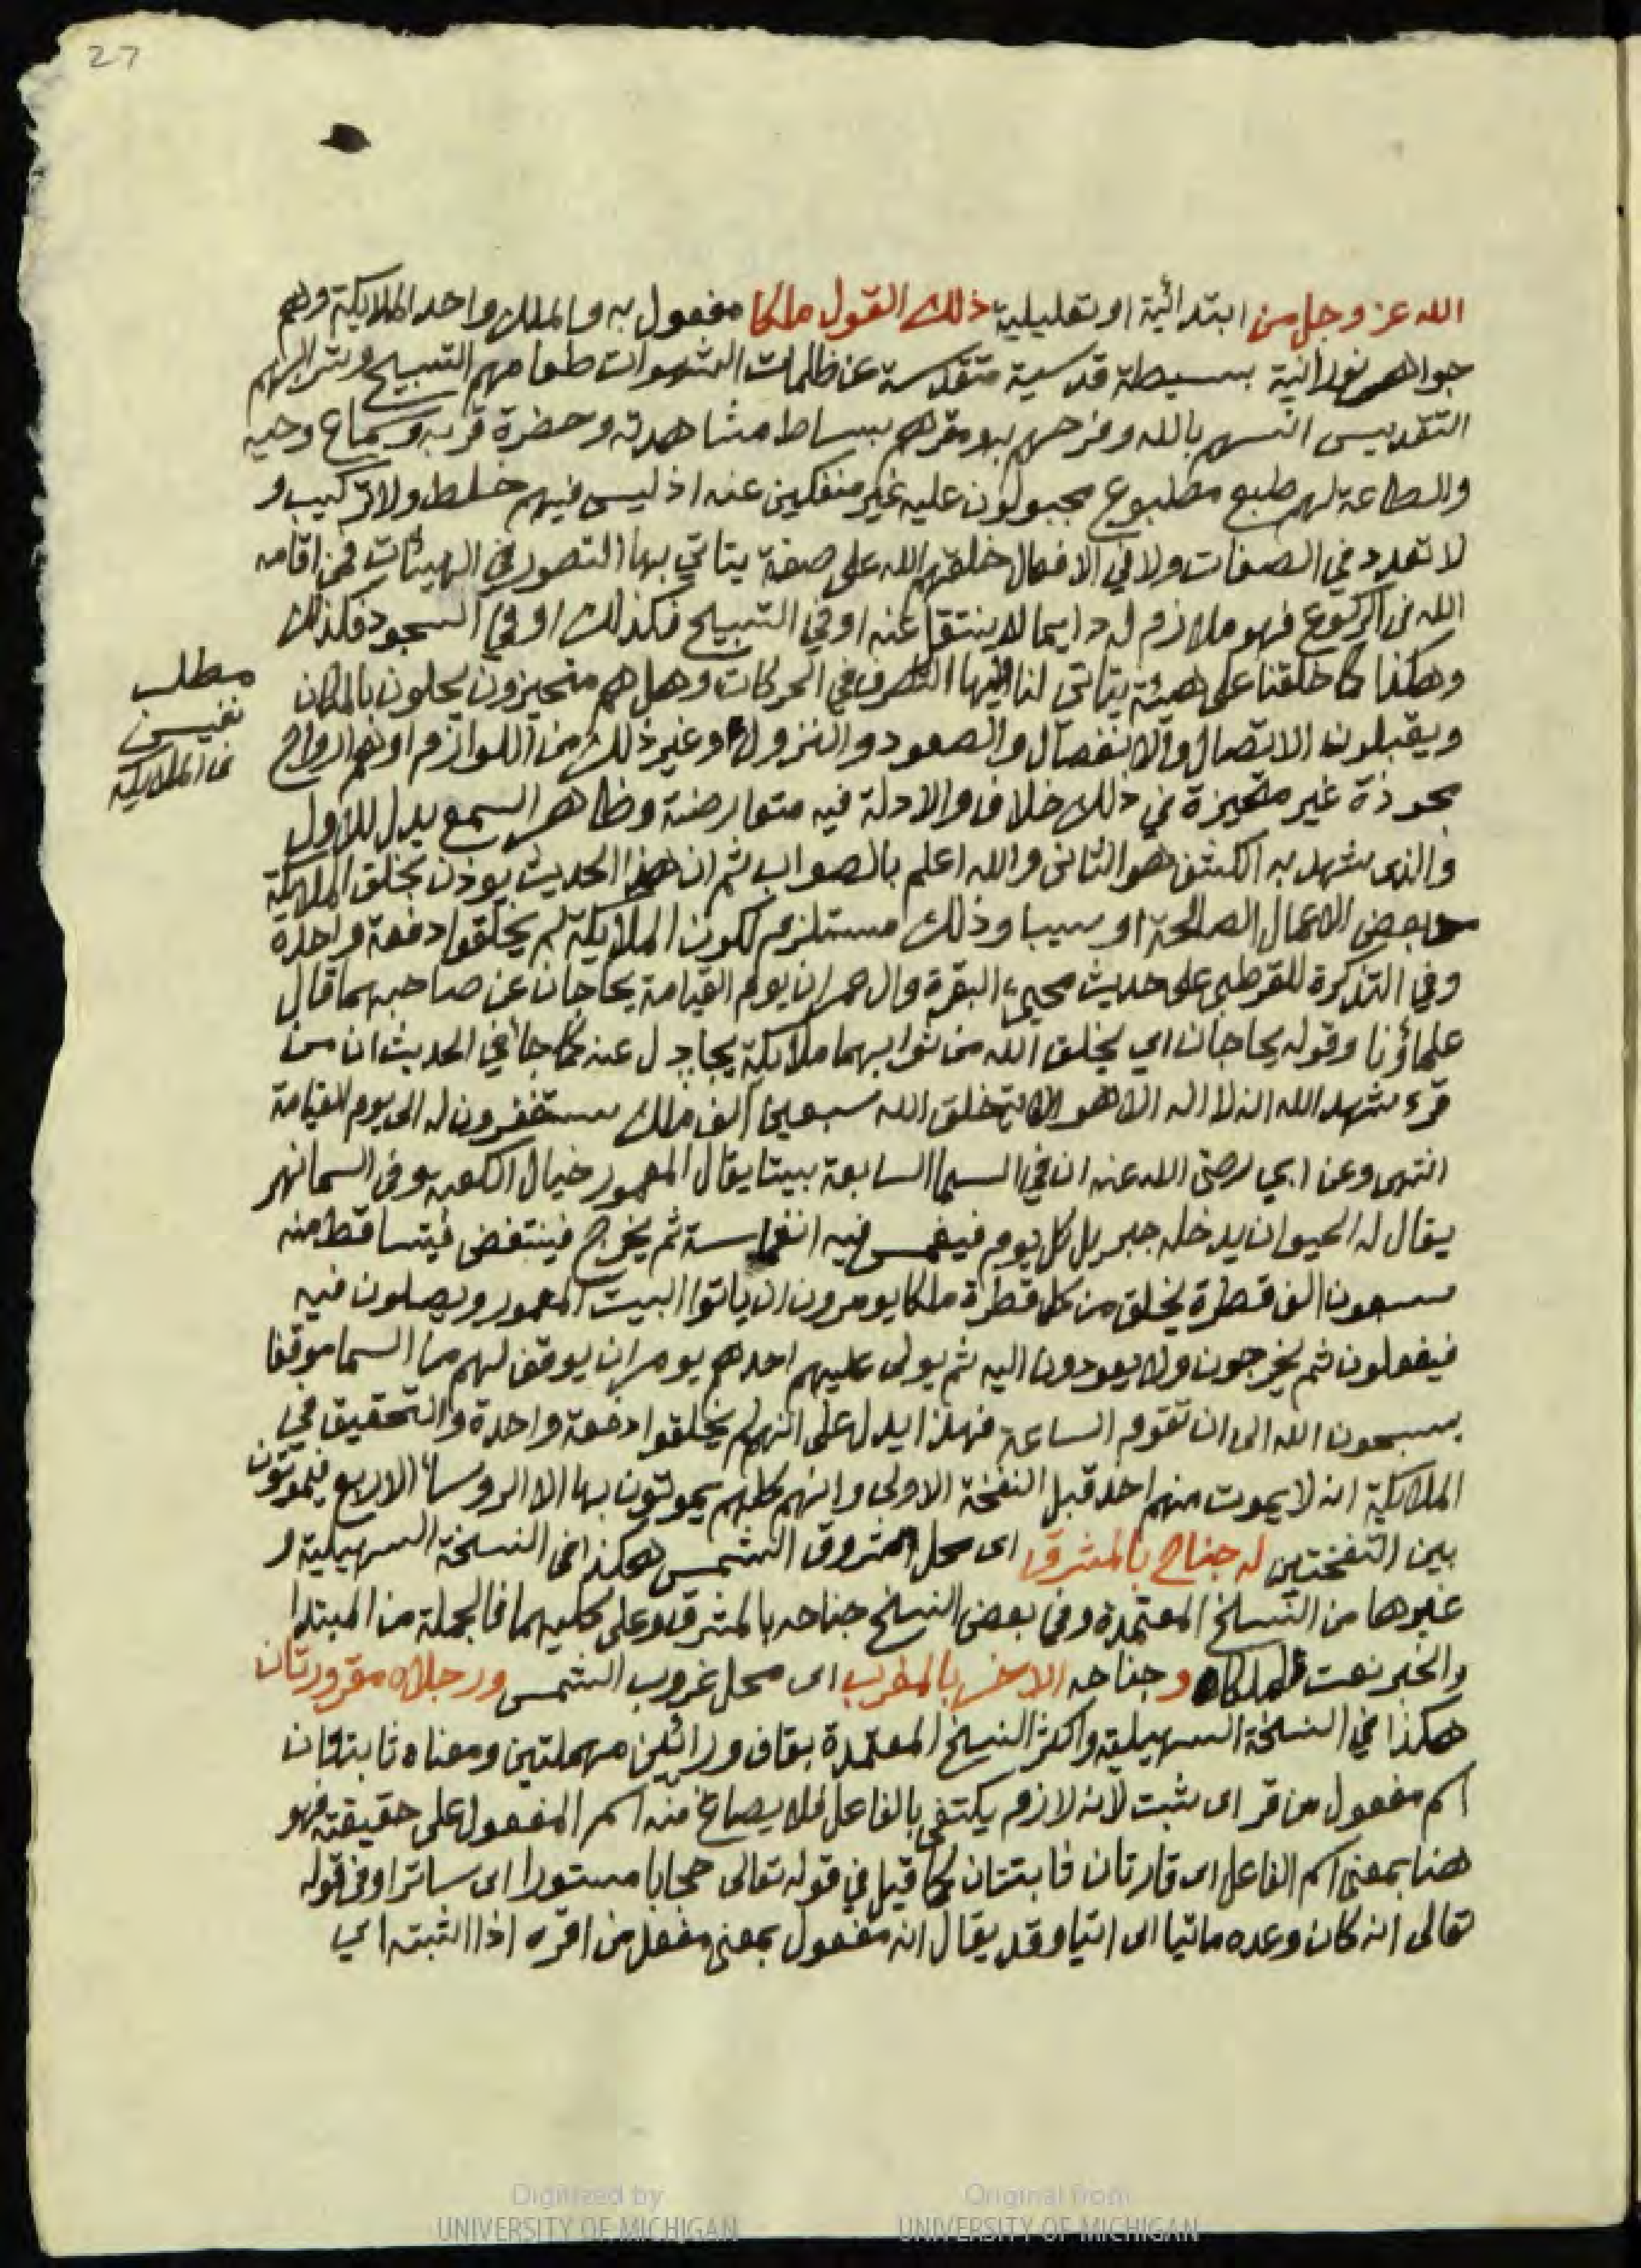 27
الله عز وجل من ابتدائية او تعليلية ذلك القول ملكا مفعول به والملك واحد الملايكة وهم
جواهر نورانية بسيطة قدسية متقدسة عن ظلمات الشهوات طعامهم التسبيح وشرابهم
التقديس انسهم بالله وفرحهم به ومقرهم بساط مشاهدته وحضرة قربه وسماع وحيه
والطاعة لهم طبع مطبوع مجبولون عليه غير منفكين عنه اذ ليس فيهم خلط ولا تركيب و
لا تعدد في الصفات ولا في الافعال خلقهم الله على صفة يتاتي بها التصور في الهيئات فمن اقامه
الله في الركوع فهو ملازم له دايما لا ينتقل عنه او في التسبيح فكذلك او في السجود فكذلك
وهكذا كما خلقنا على هيئة يتاتى لنا فيها التصرف في الحركات وهل هم متحيزون يحلون بالمكان
ويقبلون الاتصال والانفصال والصعود والنزول وغير ذلك من اللوازم او هم ارواح
مجردة غير متحيزة في ذلك خلاف والادلة فيه متعارضة وظاهر السمع يدل للاول
والذى يشهد به الكشف هو الثانى والله اعلم بالصواب ثم ان هذا الحديث يوذن بخلق الملايكة
بعض الاعمال الصالحة او سببا وذلك مستلزم لكون الملايكة لم يخلقوا دفعة واحدة
وفي التذكرة للقرطبي على حديث مجيء البقرة وال عمران يوم القيامة يحاجان عن صاحبهما قال
علماؤنا وقوله يحاجان اي يخلق الله من ثوابهما ملايكة يجادل عنه كما جا في الحديث ان من
قرء شهد الله انه لا اله الا هو الاية خلق الله سبعين الف ملك يستغفرون له الى يوم القيامة
انتهى وعن ابي رضى الله عنه ان في السما السابعة بيتا يقال المعمور خيال الكعبه وفى السما نهر
يقال له الحيوان يدخله جبريل كل يوم فيغمس فيه انغماسة ثم يخرج فينتفض فيتساقط منه
سبعون الف قطرة يخلق من كل قطرة ملكا يومرون ان ياتوا البيت المعمور ويصلون فيه
فيفعلون ثم يخرجون ولا يعودون اليه ثم يولى عليهم احدهم يومر ان يوقف لهم من السما موقفا
يسبحون الله الى ان تقوم الساعة فهذا يدل على انهم لم يخلقوا دفعة واحدة والتحقيق في
الملايكة انه لا يموت منهم احد قبل النفخة الاولى وانهم كلهم يموتون بها الا الروسا الاربع فيموتون
بين النفختين له جناح بالمشرق اى محل شروق الشمس هكذا فى النسخة السهيلية و
غيرها من النسخ المعتمدة وفى بعض النسخ جناحه بالمشرق وعلى كليهما فالجملة من المبتدا
والخبر نعت لملكا وجناحه الاخر بالمغرب اى محل غروب الشمس ورجلاه مقرورتان
هكذا في النسخة السهيلية واكثر النسخ المعتمدة بقاف ورائين مهملتين ومعناه ثابتتان
اسم مفعول من قر اى ثبت لانه لازم يكتفى بالفاعل فلا يصاغ منه اسم المفعول على حقيقته فهو
هنا بمعنى اسم الفاعل اى قارتان ثابتتان كما قيل في قوله تعالى حجابا مستورا اى ساترا وفى قوله
تعالى انه كان وعده ماتيا اى اتيا وقد يقال انه مفعول بمعنى مفعل من اقره اذا اثبته اي
مطلب
نفيس
فى الملايكة
Digitized by
UNIVERSITY OF MICHIGAN
Original from
UNIVERSITY OF MICHIGAN